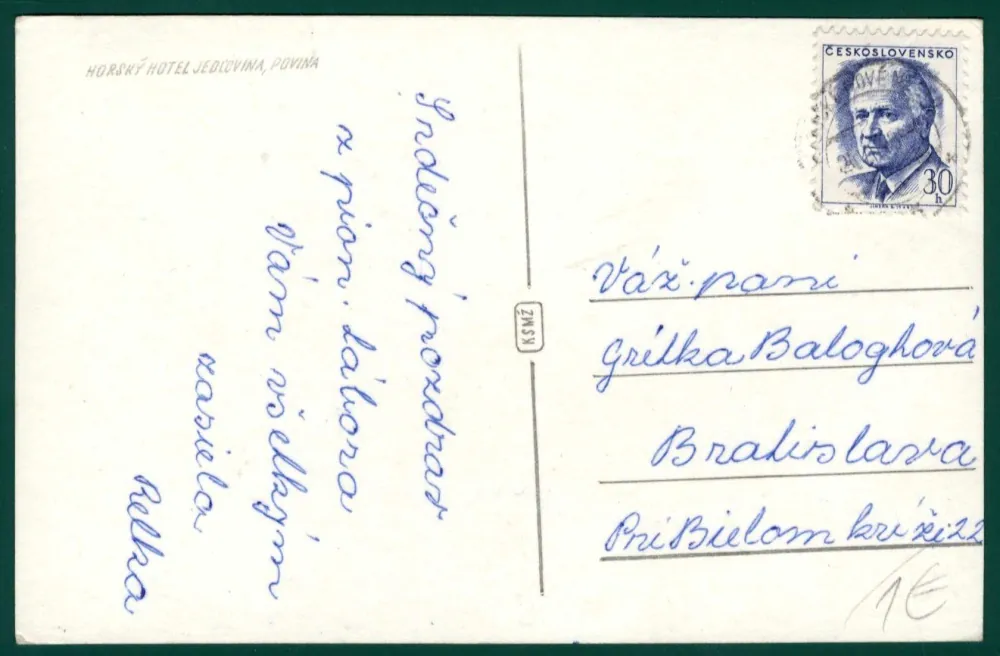 HORSKÝ HOTEL JEDĽOVINA, POVINA
Srdečný pozdrav
z pion. tábora
Vám všetkým
zasiela
Relka
KSMŽ
ČESKOSLOVENSKO
30
h
Váž. pani
Gritka Baloghová
Bratislava
Pri Bielom kríži 22
1€